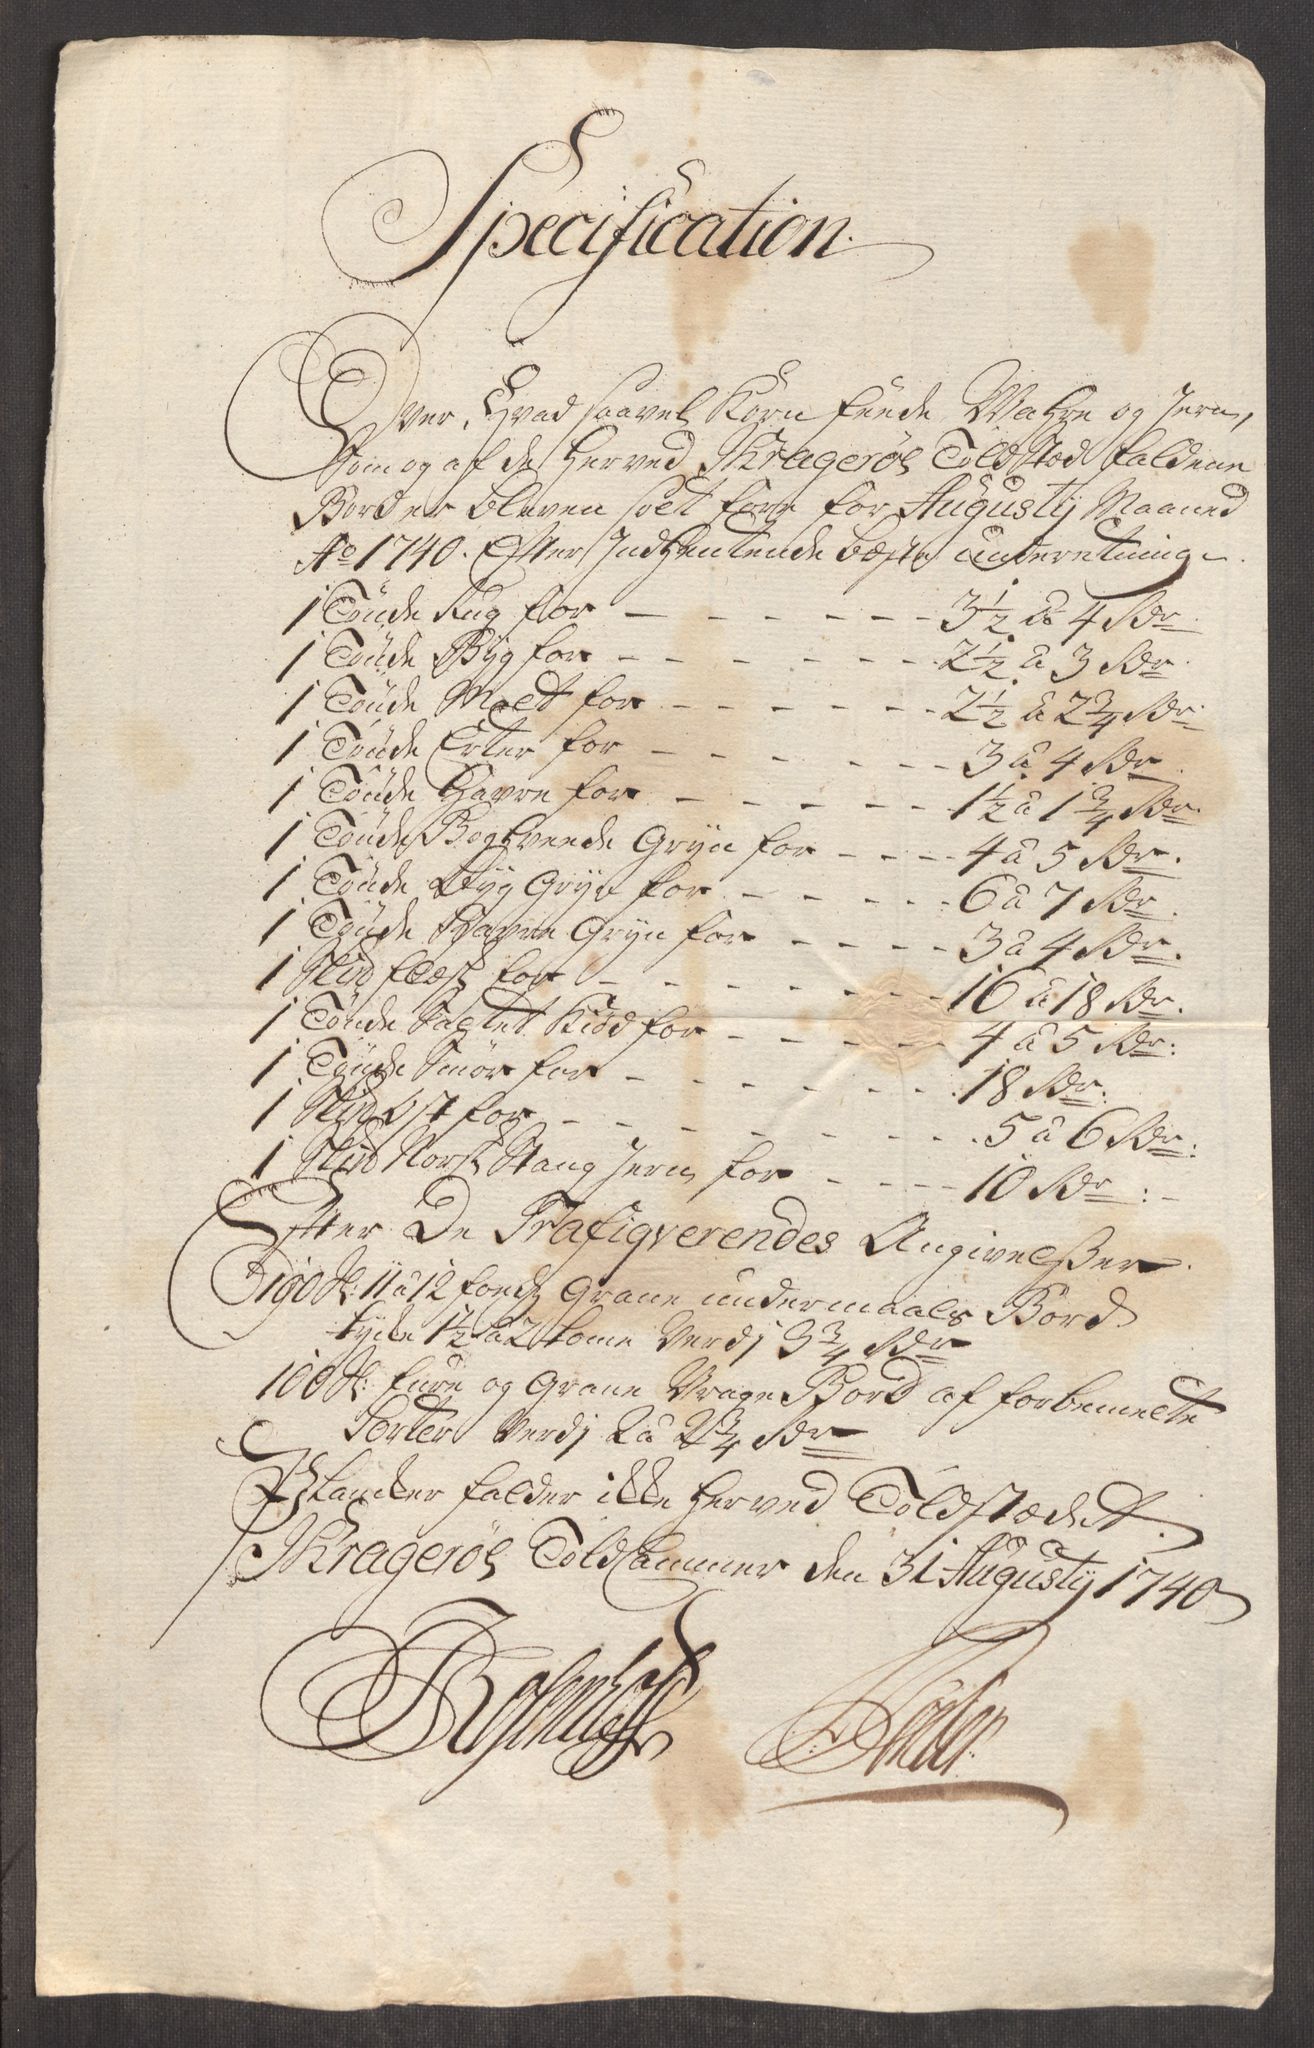 Specification.
Over, Hvad saavel Korn feede Wahre og Jern,
som og af de herved Kragerøes Told Stæd faldene
Bord er bleven solt fore for Augustij Maaned
Ao 1740. Efter Indhentende bæste Underetning
1 Tønde Rug for - - - - - - 3 1/2 â 4 Rdr
1 Tønde Byg for - - - - - - 2 1/2 â 3 Rdr
1 Tønde Malt for - - - - - - 2 1/2 â 2 3/4 Rdr
1 Tønde Erter for - - - - - - 3 â 4 Rdr
1 Tønde Havre for - - - - - - 1 1/2 â 1 3/4 Rdr
1 Tønde Boghvede Gryn for - - - - 4 â 5 Rdr.
1 Tønde Byg Gryn for - - - - - 6 â 7 Rdr.
1 Tønde Havre Gryn for - - - - 3 â 4 Rdr.
1 Skpd flæsk for - - - - - - - 16 â 18 Rdr.
1 Tønde Saltet Kiød for - - - - - 4 â 5 Rdr:
1 Tønde Smør for - - - - - - - 18 Rdr:
1 Skpd Ost for - - - - - - - - 5 â 6 Rdr:
1 Skpd Norsk Stang Jern for - - - - 10 Rdr:
Efter De Trafiqverendes Angivelßer
100 St: 11 â 12 foeds Grane undermaals Bord
tycke 1 1/2 â 2 tome Verdj 3 3/4 Rdr
100 St: fure og Grane Vrage Bord af forbemelte
Sorter Verdj 2 â 2 3/4 Rdr
Plancker falder icke herved Toldstædet.
Kragerøes Told Cammer den 31 Augustij 1740